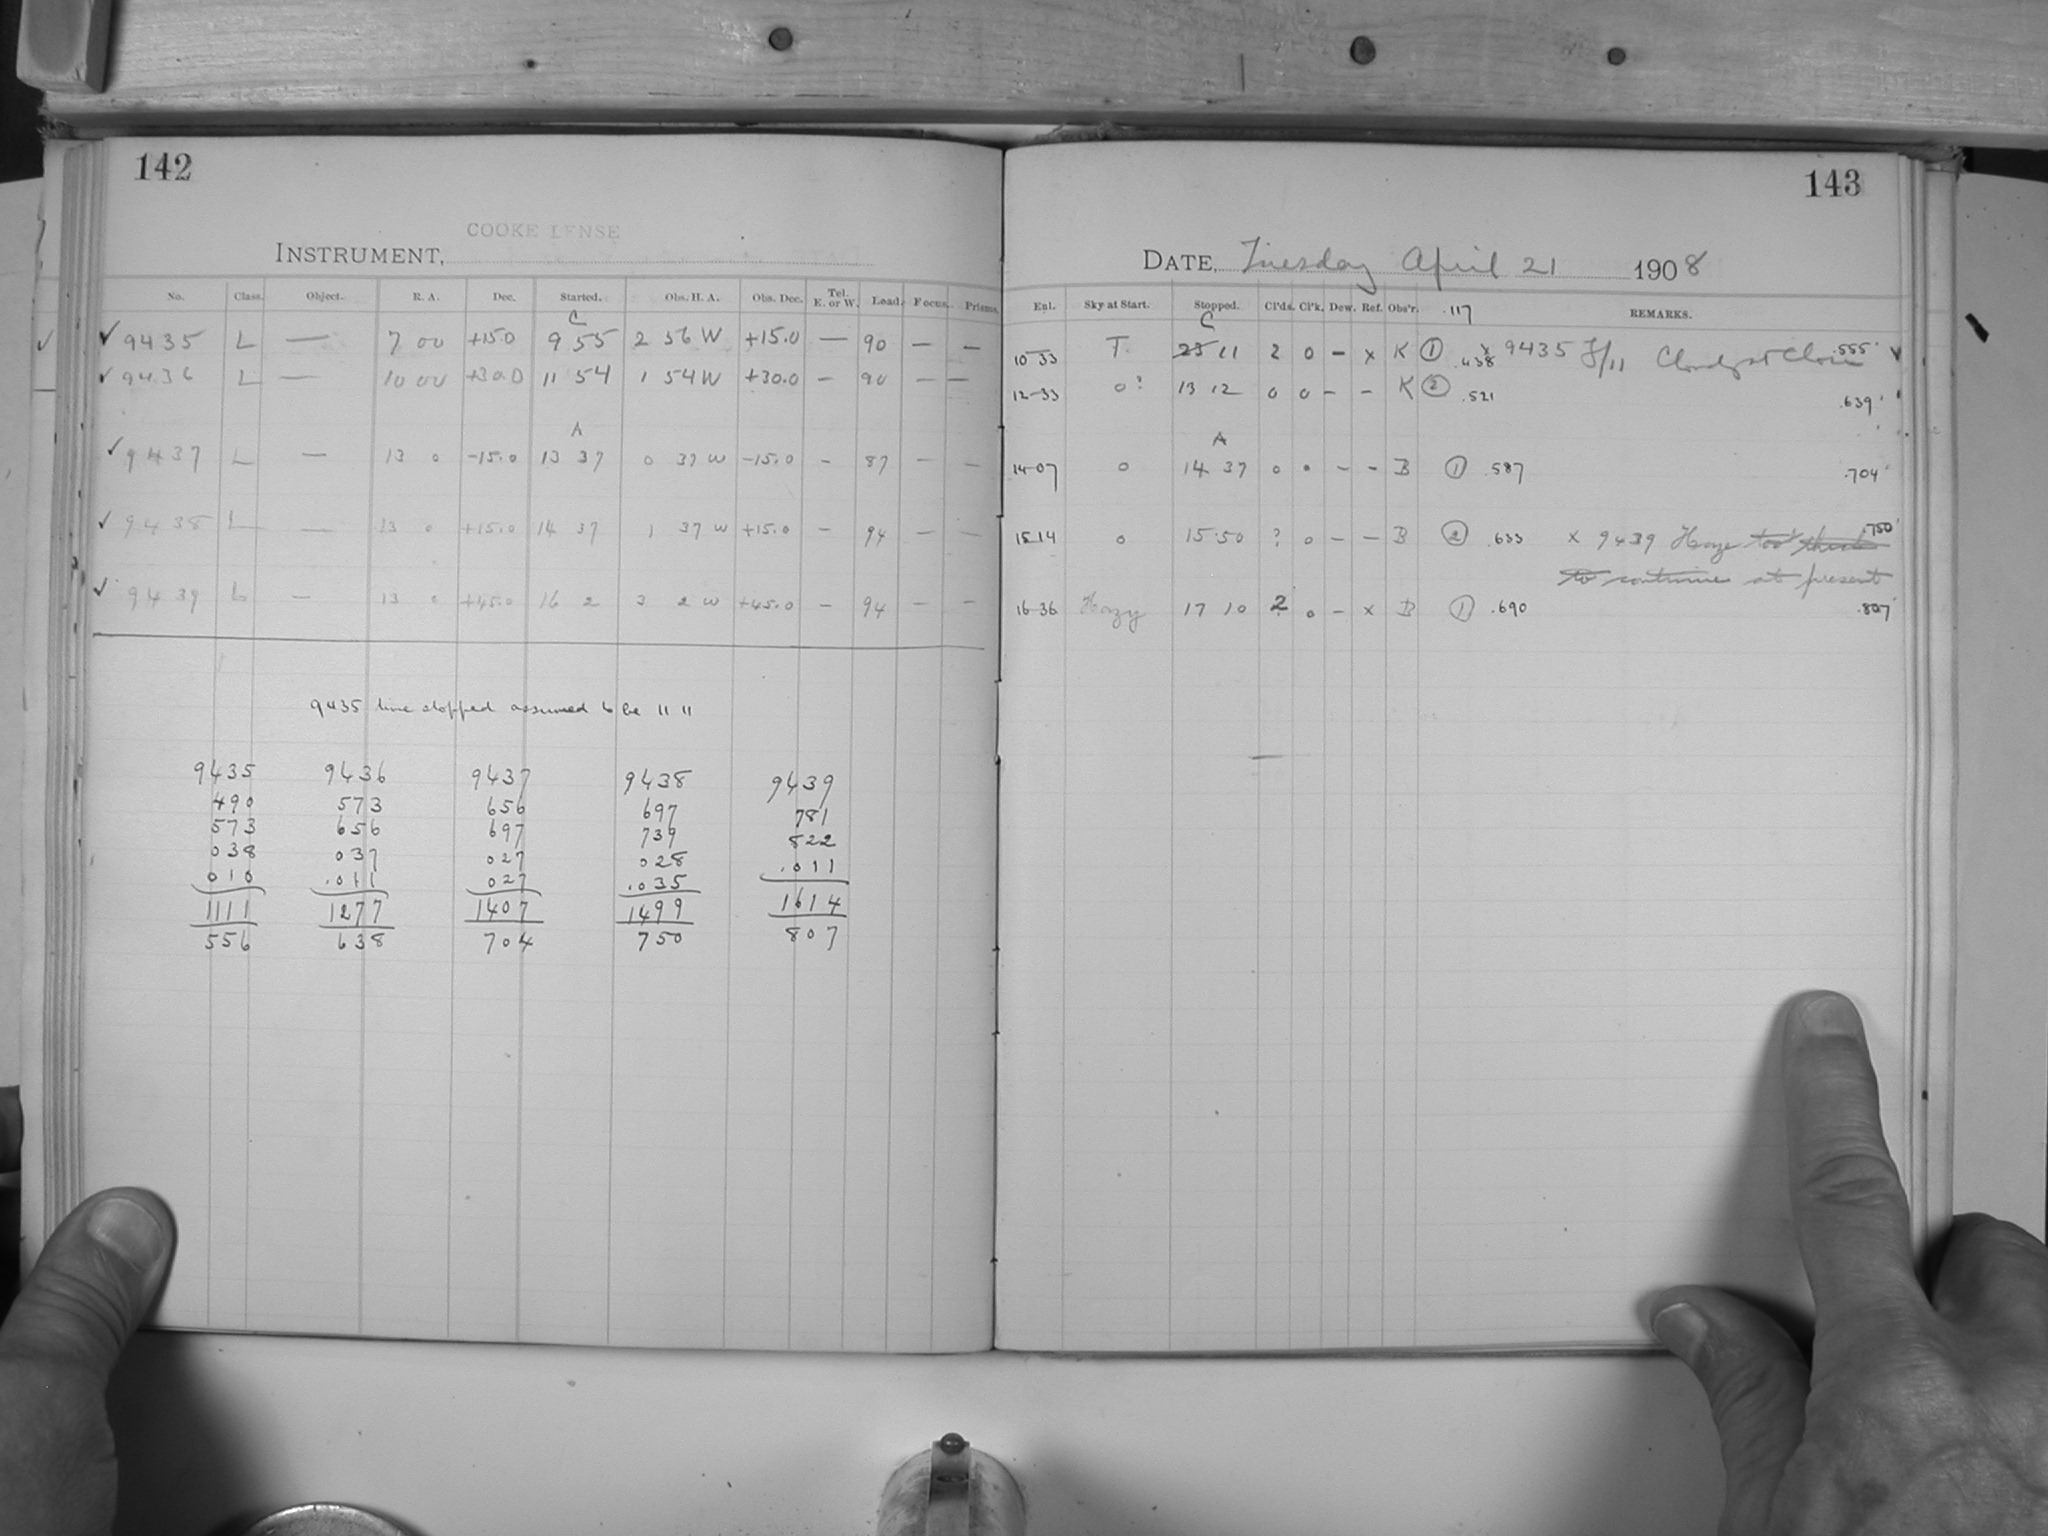 142
COOKE LENSE
INSTRUMENT,
No. Class. Object. R. A. Dec. Started. Obs. H. A. Obs. Dec. Tel. E. or W. Load. Focus. Prisms.
C
✓ 9435 L — 7 00 +15.0 9 55 2 56 W +15.0 — 90 — —
✓ 9436 L — 10 00 +30.0 11 54 1 54 W +30.0 — 90 — —
A
✓ 9437 L — 13 0 -15.0 13 37 0 37 W -15.0 — 87 — —
✓ 9438 L — 13 0 +15.0 14 37 1 37 W +15.0 — 94 — —
✓ 9439 L — 13 0 +45.0 16 2 3 2 W +45.0 — 94 — —
9435 time stopped assumed to be 11 11
9435 9436 9437 9438 9439
490 573 656 697 781
573 656 697 739 822
038 037 027 028 .011
010 .011 027 .035
1111 1277 1407 1499 1614
556 638 704 750 807
143
DATE, Tuesday April 21 1908
Enl. Sky at Start. Stopped. Cl'ds. Cl'k. Dew. Ref. Obs'r. .117 REMARKS.
C
10-33 T. 23 11 2 0 — x K ① .438 x 9435 F/11 Cloudy at Close .555
12-33 0? 13 12 0 0 — — K ② .521 .639
A
14-07 0 14 37 0 0 — — B ① .587 .704
15 14 0 15 50 ? 0 — — B ② .633 x 9439 Haze too thick .750
to continue at present
16-36 Hazy 17 10 2 0 — x B ① .690 .807